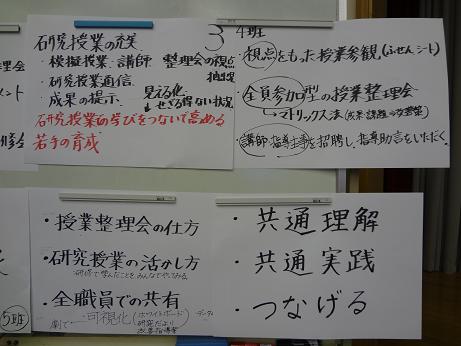 研究授業の充実
・模擬授業・講師
整理会の視点
・研究授業通信
・成果の提示
見える化
せざる得ない状況
研究授業の学びをつないで高める
若手の育成
3
4班
・視点をもった授業参観（ふせんシート）
・全員参加型の授業整理会
マトリックス法（成果・課題→改善策）
・講師・指導主事を招聘し、指導助言をいただく。
・授業整理会の仕方
・研究授業の活かし方
研修で学んだことをみんなでやってみる
・全職員での共有
可視化（ホワイトボード
研究だより
・共通理解
・共通実践
・つなげる
5班